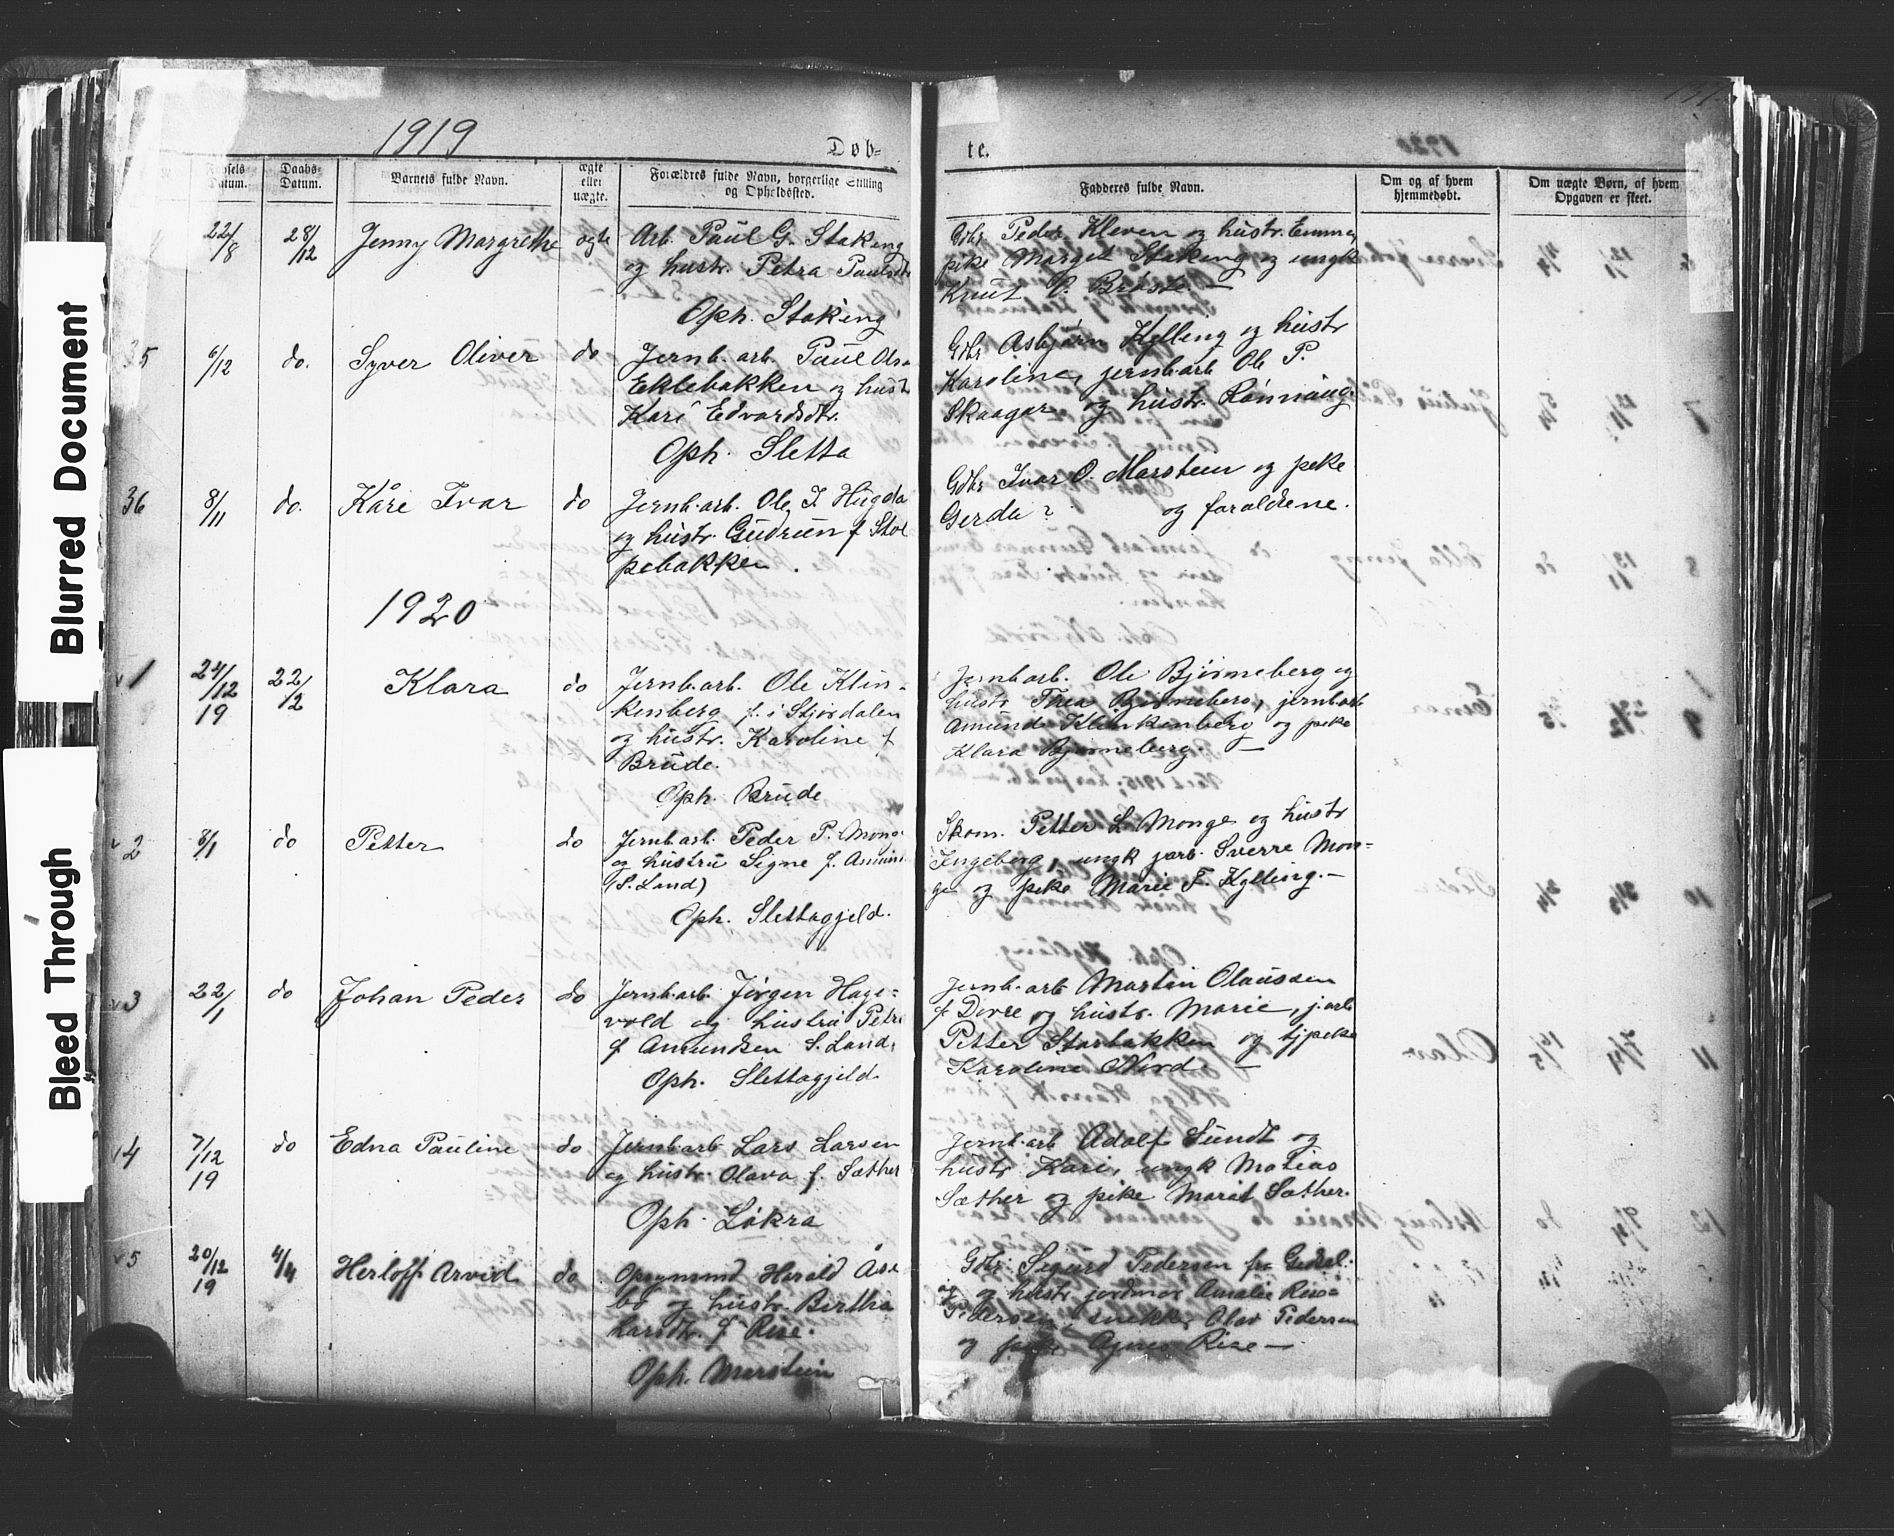 Blurred Document
Bleed Through
1919
Døb-
te.
Fødsels Datum.
Daabs-Datum.
Barnets fulde Navn.
ægte eller uægte.
Forældres fulde Navn, borgerlige Stilling og Opholdssted.
Faddernes fulde Navn.
Om og af hvem hjemmedøbt.
Om uægte Børn, af hvem Opgaven er skeet.
22/8 28/12 Jenny Margrethe ogte Arb. Paul G. Staking
og hustr. Petra Paulsdt
Oph. Staking
Gbr Peder Kleven og hustr. Emma,
pike Marget Staking og ungk
Knut P. Brøste —
35 6/12 do. Syver Oliver do Jernb. arb. Paul Ols.
Eklebakken og hustr
Kari Edvardsdtr.
Oph. Sletta
Gbr Asbjørn Kylling og hustr
Karoline, jernb.arb Ole P.
Skaagar og hustr. Rønnaug.
36 8/11 do. Kåre Ivar do Jernb. arb. Ole J. Hugda
og hustr. Gudrun f Stol
pebakken.
Gbr Ivar O. Marstein og pike
Gerda ? og foraldrene.
1920
v 1 24/12 19 22/2 Klara do Jernb. arb. Ole Klin-
kenberg f. i Stjørdalen
og hustr. Karoline f
Brude.
Oph. Brude
Jernb arb. Ole Bjørneberg og
hustr Thea Bjørneberg, jernb arb
Amund Klinkenberg og pike
Klara Bjørneberg. —
v 2 8/1 do Petter do Jernb. arb. Peder P. Monge
og hustru Signe f. Amun
(S. Land)
Oph. Slettagjeld.
Skom. Petter L. Monge og hustr
Ingeberg, ungk jarb. Sverre Mon=
ge og pike Marie T. Kylling. —
v 3 22/1 do Johan Peder do Jernb.arb. Jørgen Hage=
vold og hustru Petra
f Amundsen S. Land.
Oph. Slettagjeld.
Jernb. arb Martin Olaussen
f Dovre og hustr. Marie, j.arb
Petter Storbakken og tjpike
Karoline Nord —
v 4 7/12 19 do Edna Pauline do Jernb.arb Lars Larsen
og hustr. Olava f. Sæther
Oph. Løkra
Jernb. arb Adolf Sundt og
hustr Kari, ungk Matias
Sæther og pike Marit Sæther.
v 5 20/12 19 4/4 Herloff Arvid do Opsynsmd Harald Åse
bø og hustr. Bertha
harsdtr. f Rise.
Oph. Marstein
Gbr. Sigurd Pedersen fra
og hustr jordmor Amalie Rise=
Pedersen, snekk. Olav Pedersen
og pike Agnes Rise —